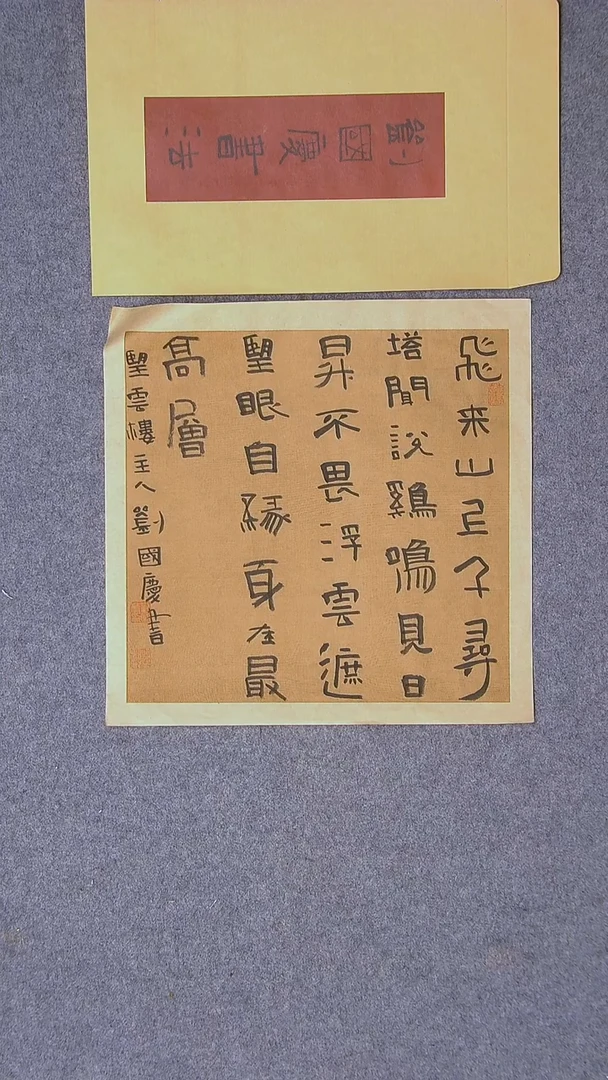 劉國慶書法
飛来山上千尋
塔聞説鷄鳴見日
昇不畏浮雲遮
望眼自緣身在最
髙層
望雲樓主人劉國慶書